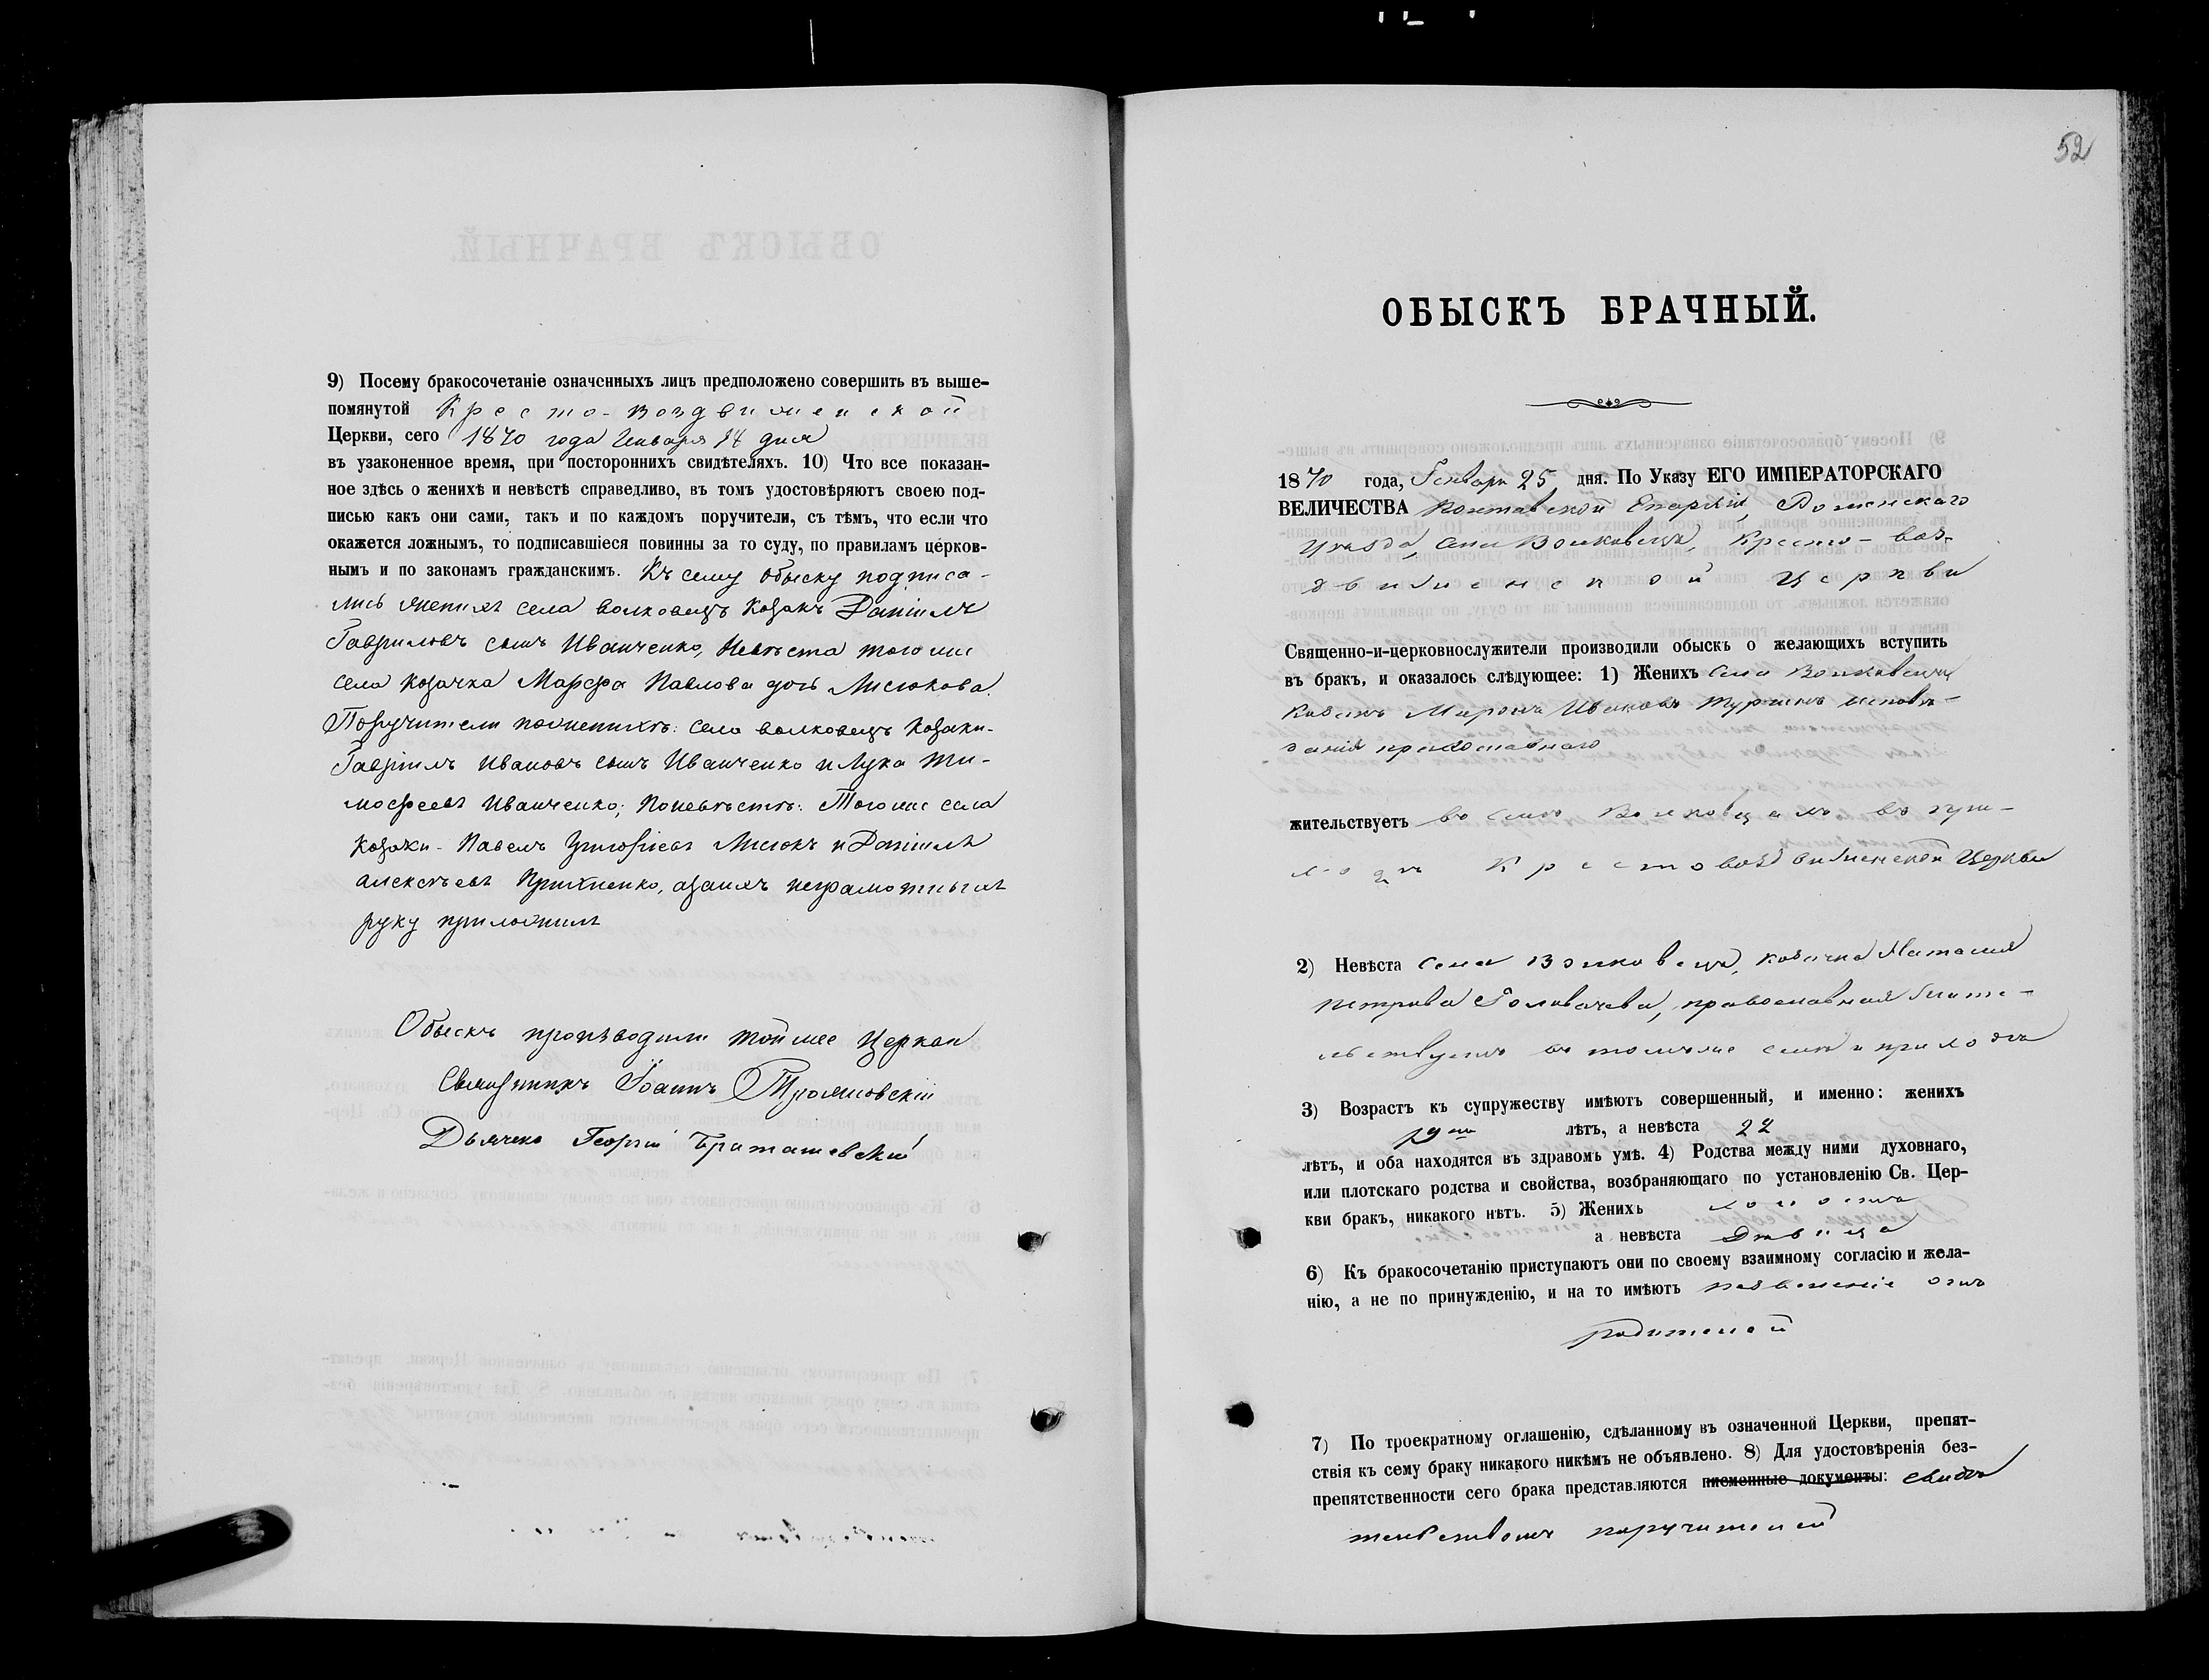 9) Посему бракосочетаніе означенныхъ лицъ предположено совершить въ выше-
помянутой Кресто-Воздвиженской
Церкви, сего 1870 года Января 18 дня
въ узаконенное время, при постороннихъ свидѣтеляхъ. 10) Что все показан-
ное здѣсь о женихѣ и невѣстѣ справедливо, въ томъ удостовѣряютъ своею под-
писью какъ они сами, такъ и по каждомъ поручители, съ тѣмъ, что если что
окажется ложнымъ, то подписавшіеся повинны за то суду, по правиламъ церков-
нымъ и по законамъ гражданскимъ. Къ сему обыску подписа-
лись женихъ села Волковецъ Козакъ Даніилъ
Гавриловъ сынъ Иванченко, Невѣста того же
села козачка Марфа Павлова дочь Лисюкова.
Поручители по женихѣ: села Волковецъ Козаки-
Гавріилъ Ивановъ сынъ Иванченко и Лука Ти-
мофеевъ Иванченко; По невѣстѣ: Того же села
Козаки - Павелъ Григоріевъ Лисюкъ и Даніилъ
Алексѣевъ, а за нихъ неграмотныхъ
руку приложилъ
Обыскъ производили той же Церкви
Священникъ Іоаннъ Трояновскій
Дьячекъ Георгій Браташевскій
52
ОБЫСКЪ БРАЧНЫЙ.
1870 года, Генваря 25 дня. По Указу ЕГО ИМПЕРАТОРСКАГО
ВЕЛИЧЕСТВА Полтавской Епархіи, Роменскаго
Уѣзда, села Волковецъ, Кресто-воз-
движенской Церкви
Священно-и-церковнослужители производили обыскъ о желающихъ вступить
въ бракъ, и оказалось слѣдующее: 1) Женихъ села Волковецъ
Козакъ Миронъ Ивановъ Туркинъ исповѣ-
данія православнаго
жительствуетъ въ селѣ Волковцахъ въ при-
ходѣ Крестовоздвиженской Церкви
2) Невѣста села Волковецъ, козачка Наталія
Петрова Головачева, православная жите-
льствуетъ въ томъ же селѣ и приходѣ
3) Возрастъ къ супружеству имѣютъ совершенный, и именно: женихъ
19ть лѣтъ, а невѣста 22
лѣтъ, и оба находятся въ здравомъ умѣ. 4) Родства между ними духовнаго,
или плотскаго родства и свойства, возбраняющаго по установленію Св. Цер-
кви бракъ, никакого нѣтъ. 5) Женихъ холостъ
а невѣста Дѣвица
6) Къ бракосочетанію приступаютъ они по своему взаимному согласію и жела-
нію, а не по принужденію, и на то имѣютъ позволеніе отъ
родителей
7) По троекратному оглашенію, сдѣланному въ означенной Церкви, препят-
ствія къ сему браку никакого никѣмъ не объявлено. 8) Для удостовѣренія без-
препятственности сего брака представляются писменные документы: свидѣ
тельствомъ поручителей